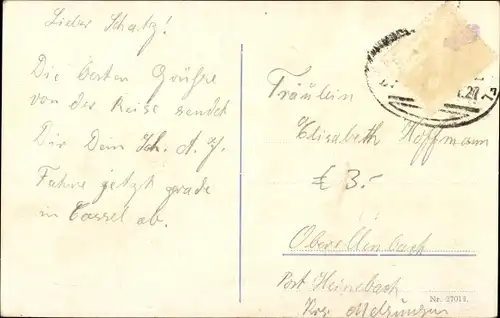 Lieber Schatz!
Die besten Grüße
von der Reise sendet
Dir Dein Sch. A. J.
Fahre jetzt grade
in Cassel ab.
Fräulein
Elisabeth Hoffmann
€ 3.-
Oberellenbach
Post Heinebach
Krs. Melsungen
Nr. 27013.